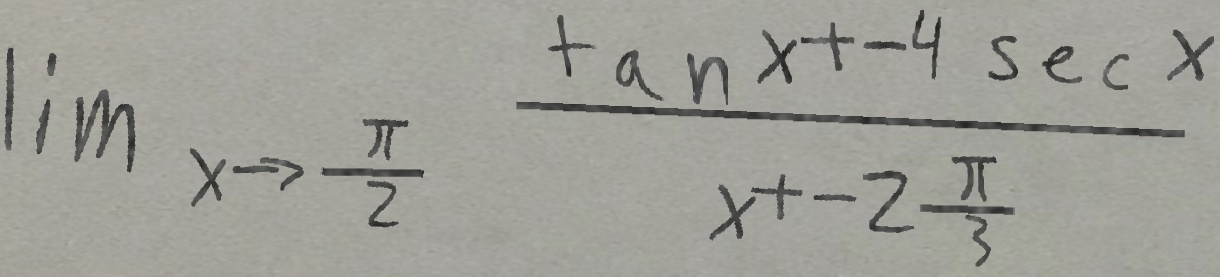 \lim_{x \to \frac{\pi}{2}} \frac{\tan x + -4 \sec x}{x + -2 \frac{\pi}{3}}